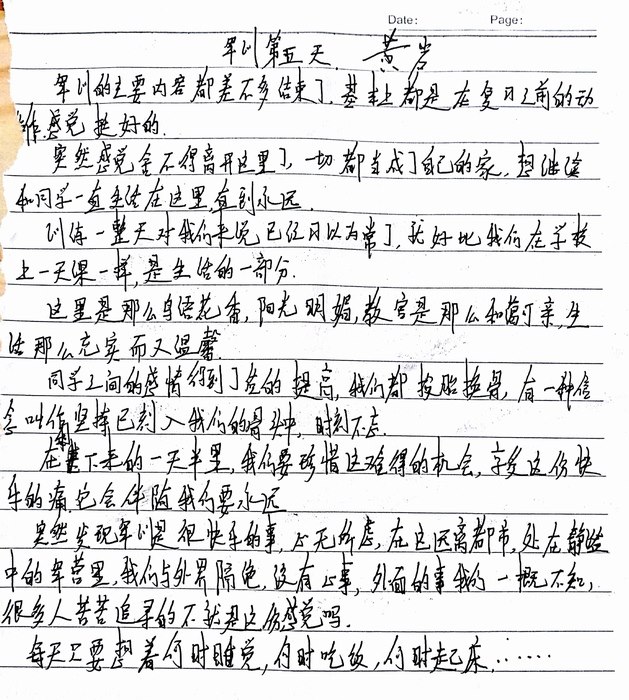 Date: Page:
军训第五天. 黄岩
军训的主要内容都差不多结束了.基本上都是在复习之前的动
作.感觉挺好的.
突然感觉舍不得离开这里了,一切都当成了自己的家,想继续
和同学一直生活在这里,直到永远.
训练一整天对我们来说已经习以为常了,就好比我们在学校
上一天课一样,是生活的一部分.
这里是那么鸟语花香,阳光明媚,教官是那么和蔼可亲,生
活那么充实而又温馨.
同学之间的感情得到了质的提高,我们都脱胎换骨,有一种信
念叫作坚持已刻入我们的骨头中,时刻不忘.
在接下来的一天半里,我们要珍惜这难得的机会,享受这份快
乐的痛它会伴随我们要永远
突然发现军训是很快乐的事,心无所虑,在这远离都市,处在静谧
中的军营里,我们与外界隔绝,没有心事,外面的事我们一概不知,
很多人苦苦追寻的不就是这份感觉吗.
每天只要想着何时睡觉,何时吃饭,何时起床,……